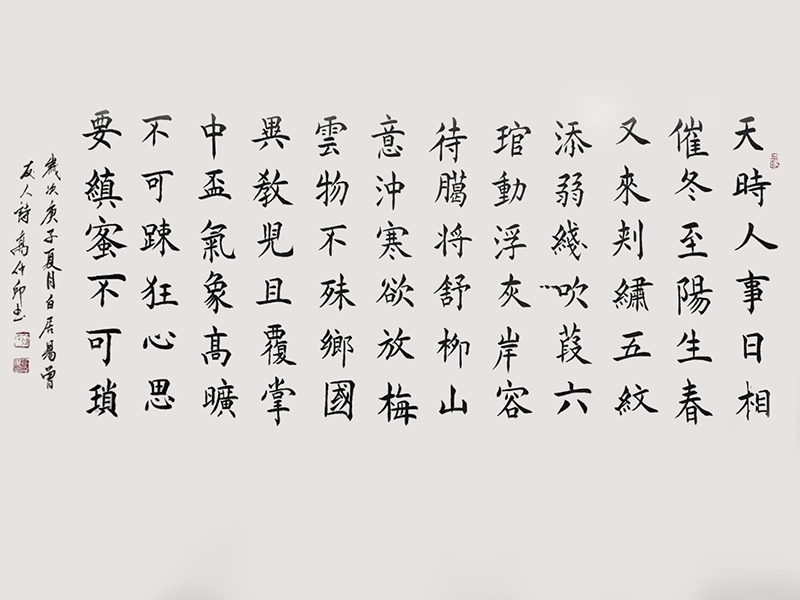 天時人事日相
催冬至陽生春
又來刾繡五紋
添弱綫吹葭六
琯動浮灰岸容
待臘將舒柳山
意沖寒欲放梅
雲物不殊鄉國
異教兒且覆掌
中盃氣象高曠
不可踈狂心思
要縝蜜不可瑣
歲次庚子夏月白居易曾
友人詩高书